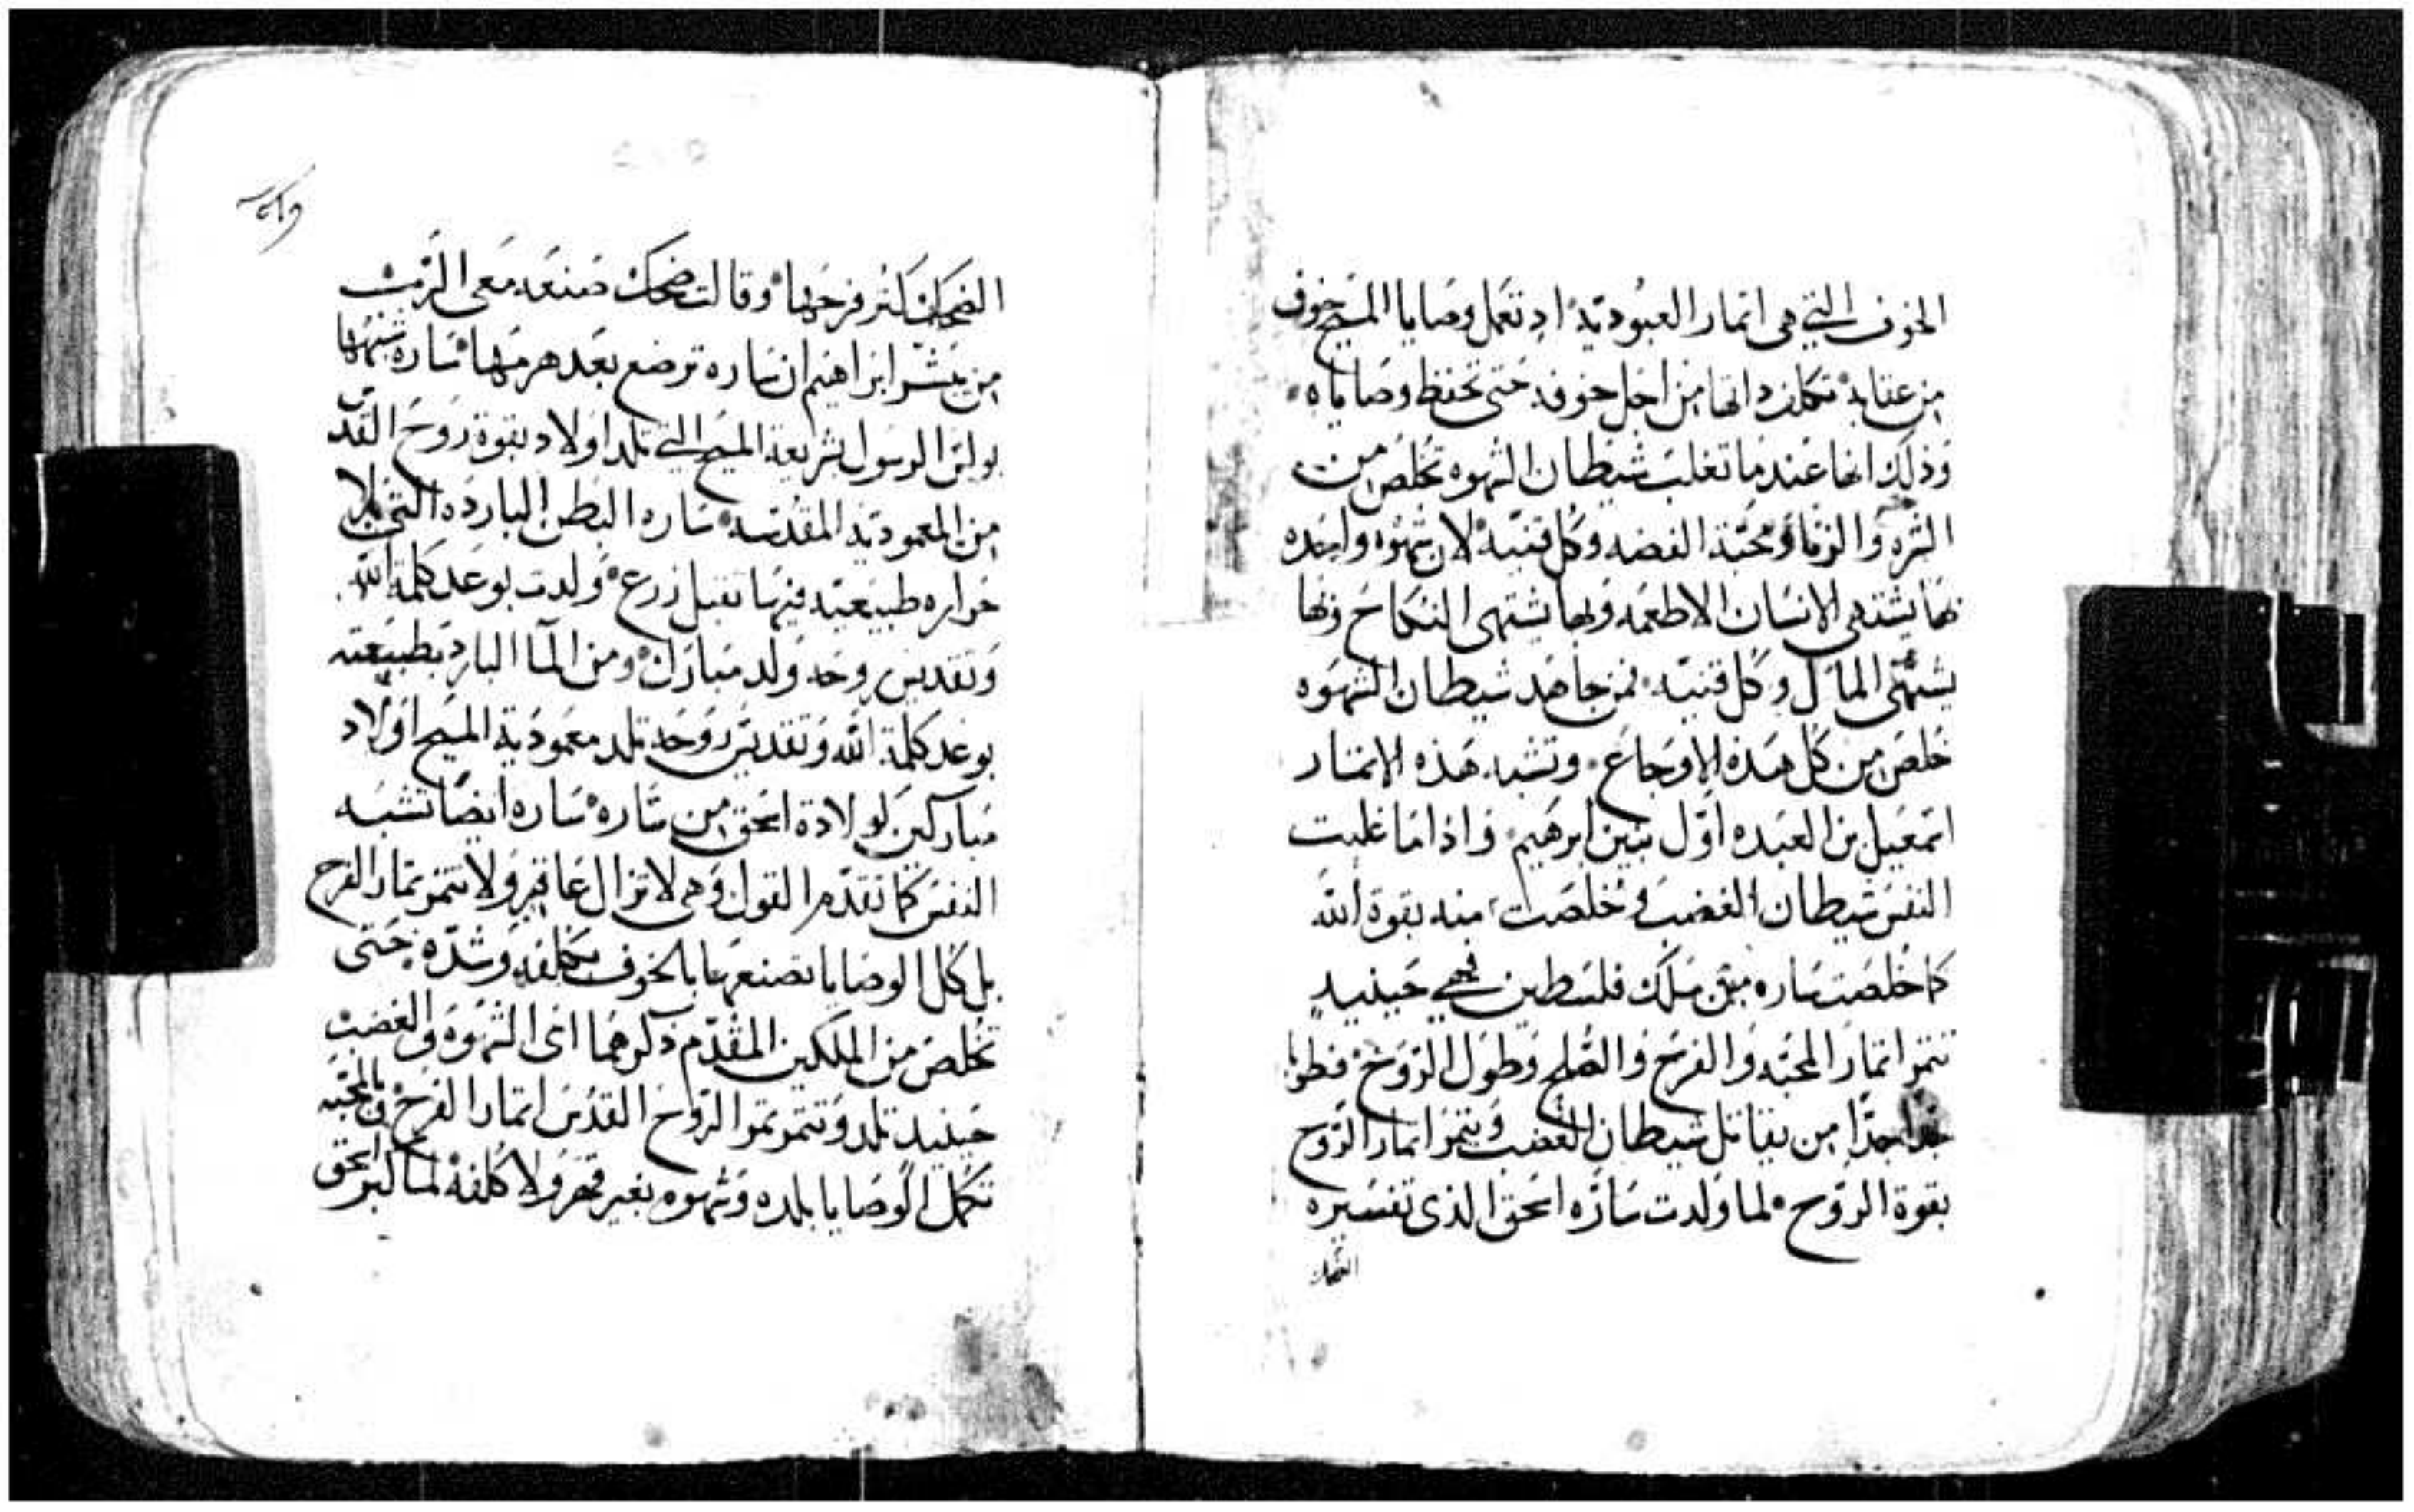 الخوف التي هي اتمار العبوديّة اد تعمل وصايا المسيح خوف
من عقابه تكلف داتها من اجل خوفه حتى تحفظ وصاياه
وذلك انها عند ما تغلب شيطان الشهوه تخلص من
الشره والزنا ومحبّة الفضه وكل قنيّه لان شهوه واحده
بها يشتهي الانسان الاطعمه وبها يشتهي النكاح وبها
يشتهي المال وكل قنيّه فمن جاهد شيطان الشهوه
خلص من كل هذه الاوجاع وتشبه هذه الاتمار
اسمعيل بن العبده اول بنين ابرهيم واذا ما غلبت
النفس شيطان الغضب وخلصت منه بقوة الله
كما خلصت ساره من ملك فلسطين فهي حينيد
تتمر اتمار المحبّه والفرح والصلح وطول الروح فطوبا
جدا جدا من يقاتل شيطان الغضب ويتمر اتمار الروح
بقوة الروح لما ولدت ساره اسحق الذي تفسيره
الضحك
الضحك كتر فرحها وقالت ضحك صنعه معي الرب
من يبشر ابراهيم ان ساره ترضع بعد هرمها ساره شبهها
بولس الرسول بشريعة المسيح التي تلد اولاد بقوة روح القدس
من المعموديّه المقدسه ساره البطن البارده التي بلا
حراره طبيعيّه فيها تقبل زرع ولدت بوعد كلمة الله
وتقديس روحه ولد مبارك ومن الما البارد بطبيعته
بوعد كلمة الله وتقديس روحه تلد معموديّة المسيح اولاد
مباركين كولادة اسحق من ساره ساره ايضًا تشبه
النفس كما تقدم القول وهي لا تزال عاقر ولا تتمر تمار الفرح
بل كل الوصايا تصنعها بالخوف بكلفه وشده حتى
تخلص من الملكين المقدّم دكرهما اي الشهوه والغضب
حينيد تلد وتتمر بتمر الروح القدس اتمار الفرح والمحبّه
تكمل الوصايا بلده وشهوه بغير قهر ولا كلفه لما كبر اسحق